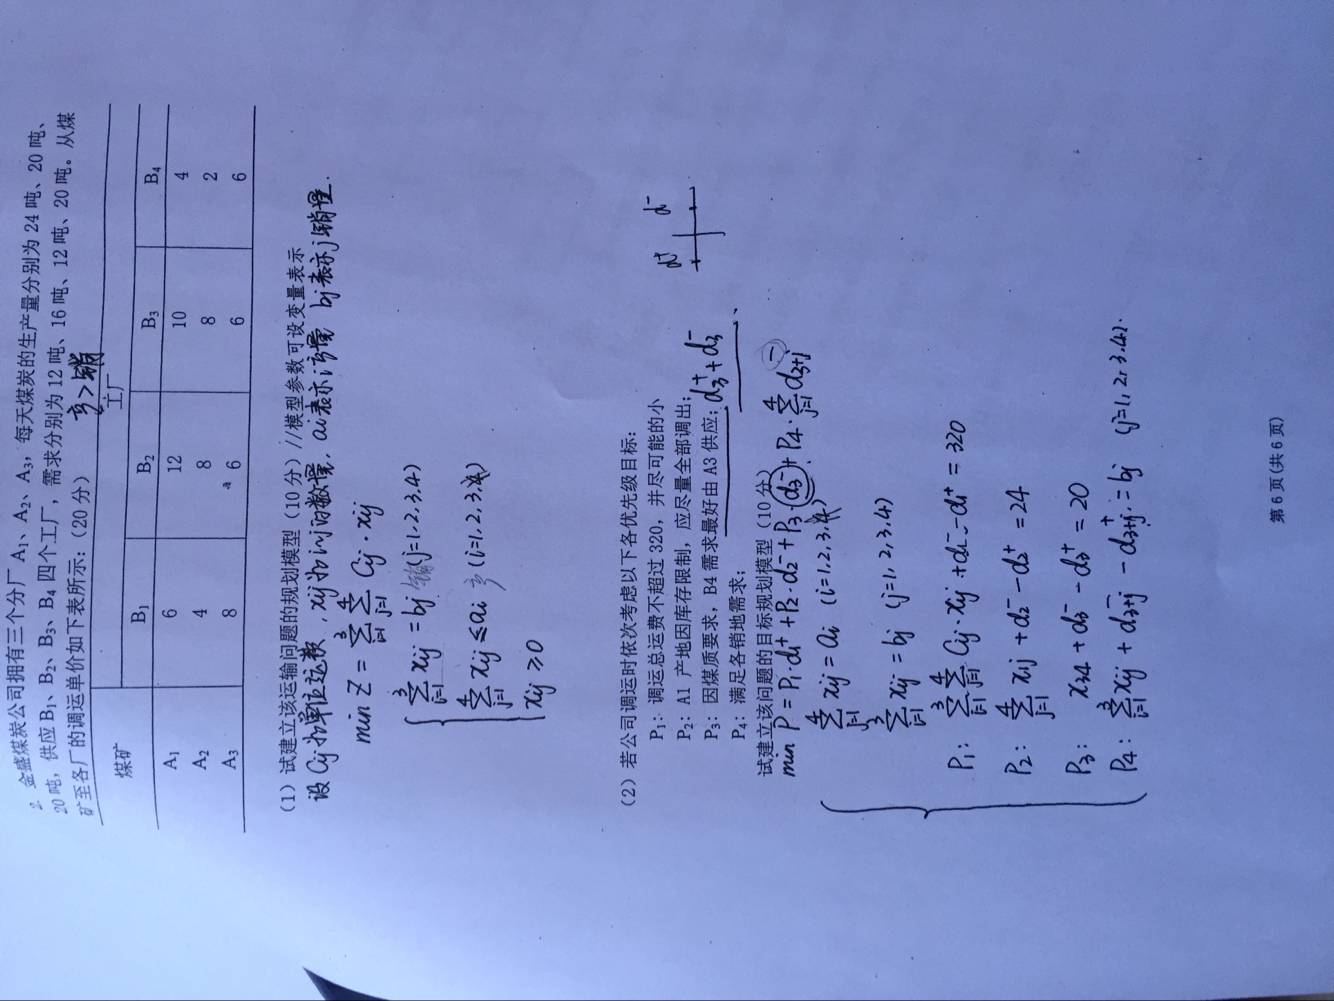 2. 金盛煤炭公司拥有三个分厂 A₁、A₂、A₃，每天煤炭的生产量分别为 24 吨、20 吨、
20 吨，供应 B₁、B₂、B₃、B₄ 四个工厂，需求分别为 12 吨、16 吨、12 吨、20 吨。从煤
矿至各厂的调运单价如下表所示：（20 分）
产>销
煤矿 工厂
B₁ B₂ B₃ B₄
A₁ 6 12 10 4
A₂ 4 8 8 2
A₃ 8 6 6 6
（1）试建立该运输问题的规划模型（10 分）//模型参数可设变量表示
设 Cij 为单位运价，xij 为 i~j 的数量，ai 表示 i 产量 bj 表示 j 销量.
min Z = ∑(i=1→3) ∑(j=1→4) Cij · xij
∑(i=1→3) xij = bj 销 (j=1,2,3,4)
∑(j=1→4) xij ≤ ai 产 (i=1,2,3)
xij ≥ 0
（2）若公司调运时依次考虑以下各优先级目标：
P₁: 调运总运费不超过 320，并尽可能的小
P₂: A1 产地因库存限制，应尽量全部调出；
P₃: 因煤质要求，B4 需求最好由 A3 供应； d₃⁺ + d₃⁻
d⁺ d⁻
P₄: 满足各销地需求；
试建立该问题的目标规划模型（10 分）
min P = P₁·d₁⁺ + P₂·d₂⁻ + P₃·d₃⁻ + P₄·∑(j=1→4) d₃₊j⁻
∑(j=1→4) xij = ai (i=1,2,3)
∑(i=1→3) xij = bj (j=1,2,3,4)
P₁: ∑(i=1→3) ∑(j=1→4) Cij·xij + d₁⁻ - d₁⁺ = 320
P₂: ∑(j=1→4) x₁j + d₂⁻ - d₂⁺ = 24
P₃: x₃₄ + d₃⁻ - d₃⁺ = 20
P₄: ∑(i=1→3) xij + d₃₊j⁻ - d₃₊j⁺ = bj (j=1,2,3,4).
第 6 页(共 6 页)